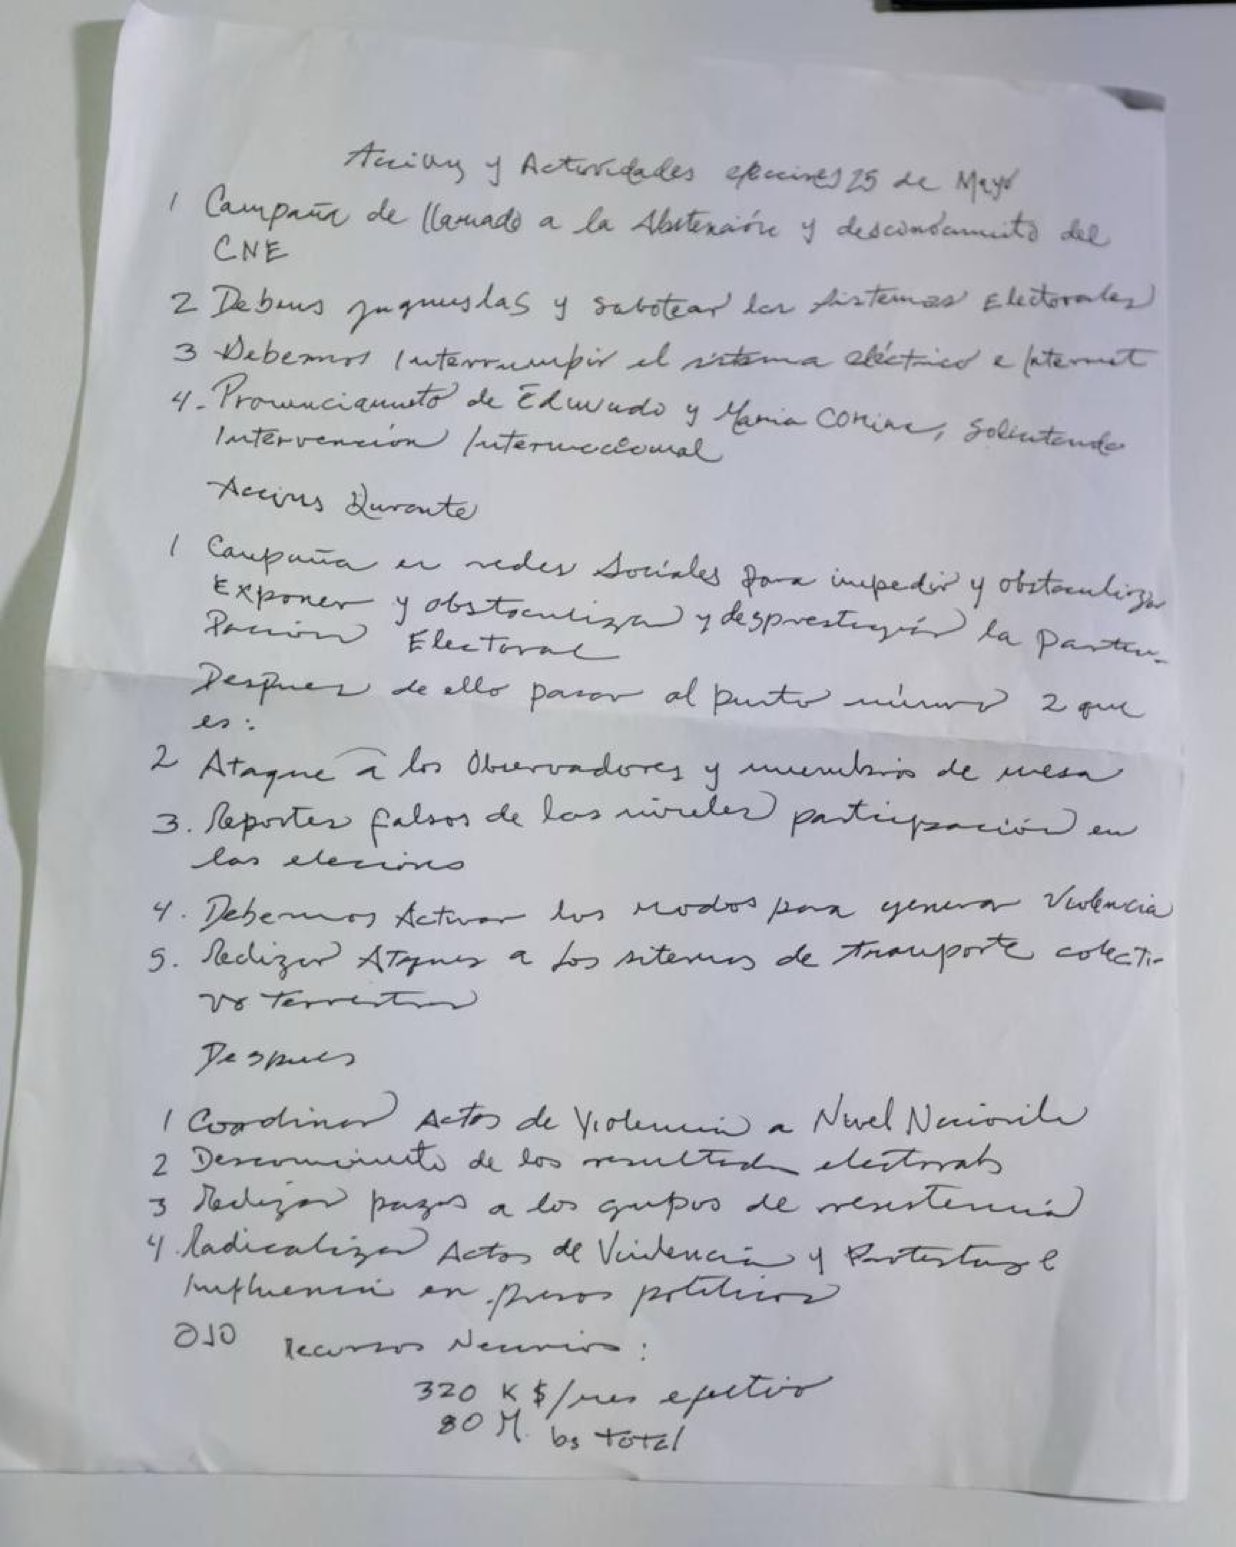 Acciones y Actividades elecciones 25 de Mayo
1 Campaña de llamado a la Abstención y desconocimiento del
CNE
2 Debemos y sabotear los sistemas Electorales
3 Debemos Interrumpir el sistema eléctrico e Internet
4. Pronunciamiento de Edmundo y Maria Corina, Solicitando
Intervención Internacional
Acciones Durante
1 Campaña en redes sociales para impedir y obstaculizar
Exponer y obstaculizar y desprestigiar la partici-
pación Electoral
Despues de ello pasar al punto número 2 que
es:
2 Ataque a los Observadores y miembros de mesa
3. Reportes falsos de los niveles participación en
las elecciones
4. Debemos Activar los nodos para generar Violencia
5. Realizar Ataques a los sistemas de transporte colecti-
vo terrestre
Despues
1 Coordinar Actos de Violencia a Nivel Nacional
2 Desconocimiento de los resultados electorales
3 Realizar pagos a los grupos de resistencia
4. Radicalizar Actos de Violencia y Protestas e
Influencia en presos politicos
OJO recursos Necesarios:
320 K $/mes efectivo
80 M. bs total